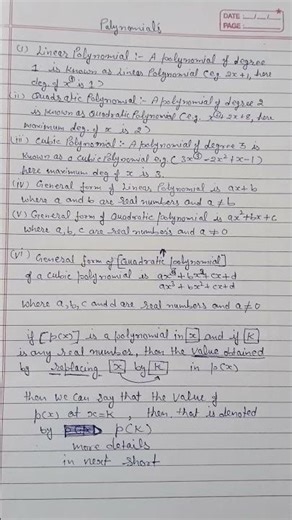 Polynomials
DATE: __/__/__
PAGE:
(i) Linear Polynomial :- A polynomial of degree
1 is known as Linear Polynomial (e.g. 2x+1, here
deg of x is 1)
(ii) Quadratic Polynomial :- A polynomial of degree 2
is known as Quadratic Polynomial (e.g. x²+2x+8, here
maximum deg. of x is 2)
(iii) Cubic Polynomial :- A polynomial of degree 3 is
known as a cubic Polynomial e.g. (3x³-2x²+x-1)
here maximum deg of x is 3.
(iv) General form of Linear Polynomial is ax+b
where a and b are real numbers and a≠b
(v) General form of Quadratic polynomial is ax²+bx+c
where a,b,c are real numbers and a≠0
(vi) General form of [Quadratic polynomial]
of a cubic polynomial is ax³+bx²+cx+d
ax³+bx²+cx+d
where a,b,c and d are real numbers and a≠0
if [p(x)] is a polynomial in [x] and if [K]
is any real number, then the value obtained
by replacing [x] by [K] in p(x)
then we can say that the value of
p(x) at x=k, then that is denoted
by p(K)
more details
in next short